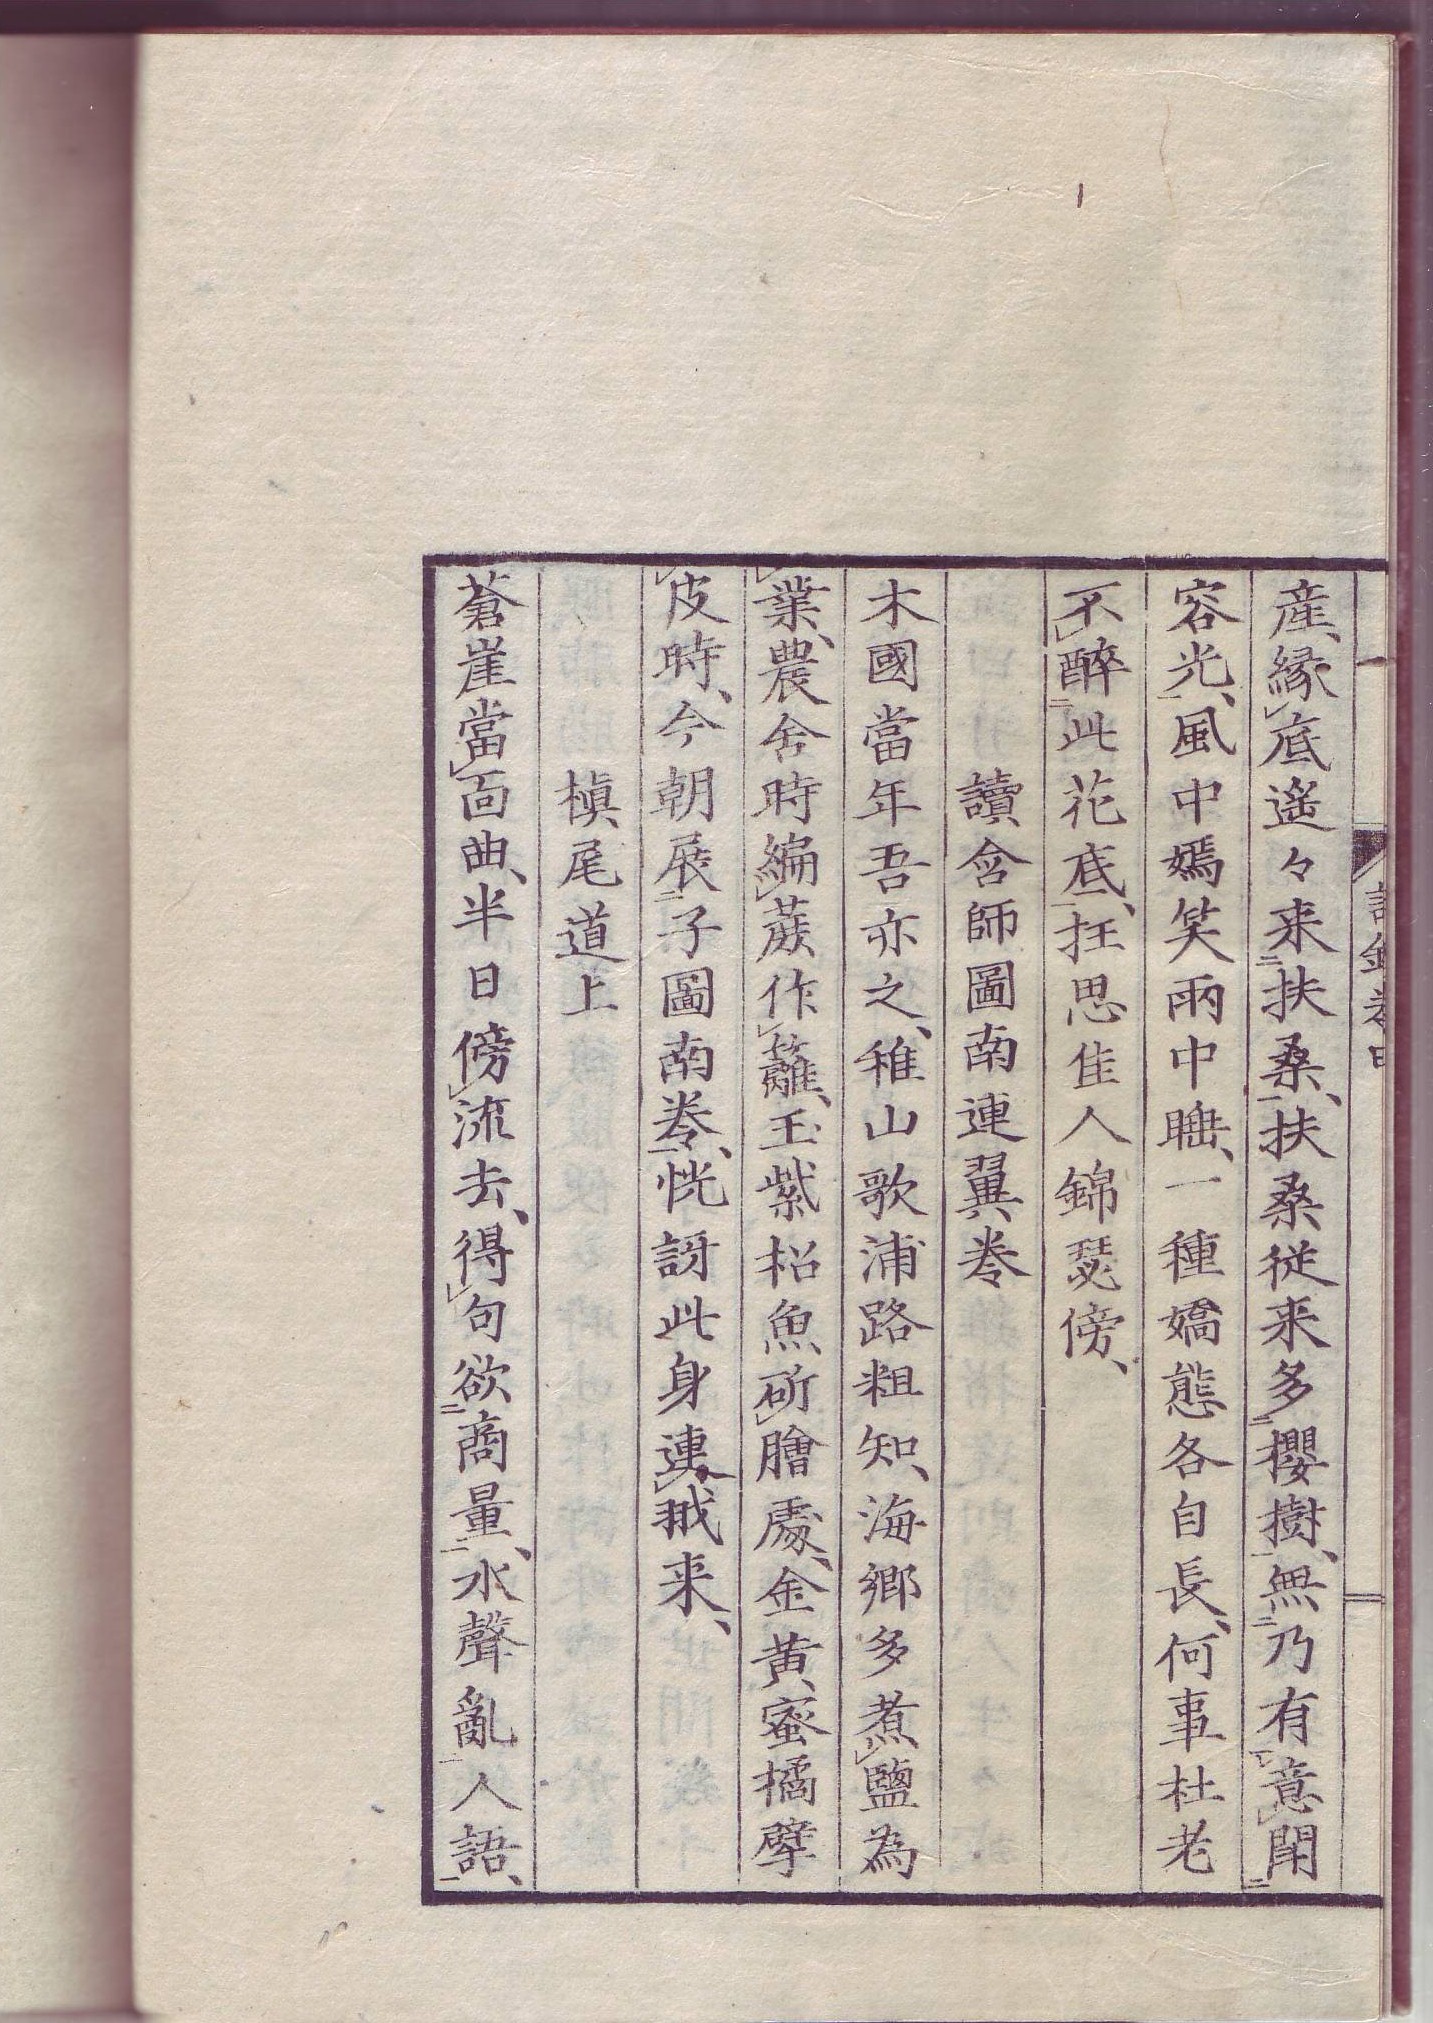 産、緣底遥々来扶桑、扶桑従来多櫻樹、無乃有意鬪
容光、風中嫣笑雨中睡、一種嬌態各自長、何事杜老
不醉此花底、狂思佳人錦瑟傍、
讀含師圖南連翼巻
木國當年吾亦之、稚山歌浦路粗知、海鄉多煮鹽為
業、農舍時編蕨作籬、玉紫柗魚斫膾處、金黄蜜橘擘
皮時、今朝展子圖南巻、恍訝此身連翅来、
槙尾道上
蒼崖當面曲、半日傍流去、得句欲商量、水聲亂人語、